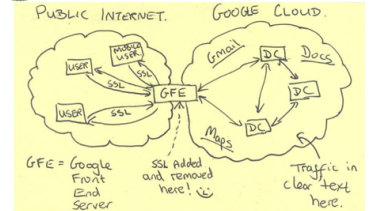 PUBLIC INTERNET.
GOOGLE CLOUD.
USER
MOBILE
USER
SSL
SSL
USER
SSL
GFE
Gmail
DC
Docs
DC
Maps
DC
GFE = Google
Front
End
Server
SSL Added
and removed
here!
Traffic in
clear text
here.